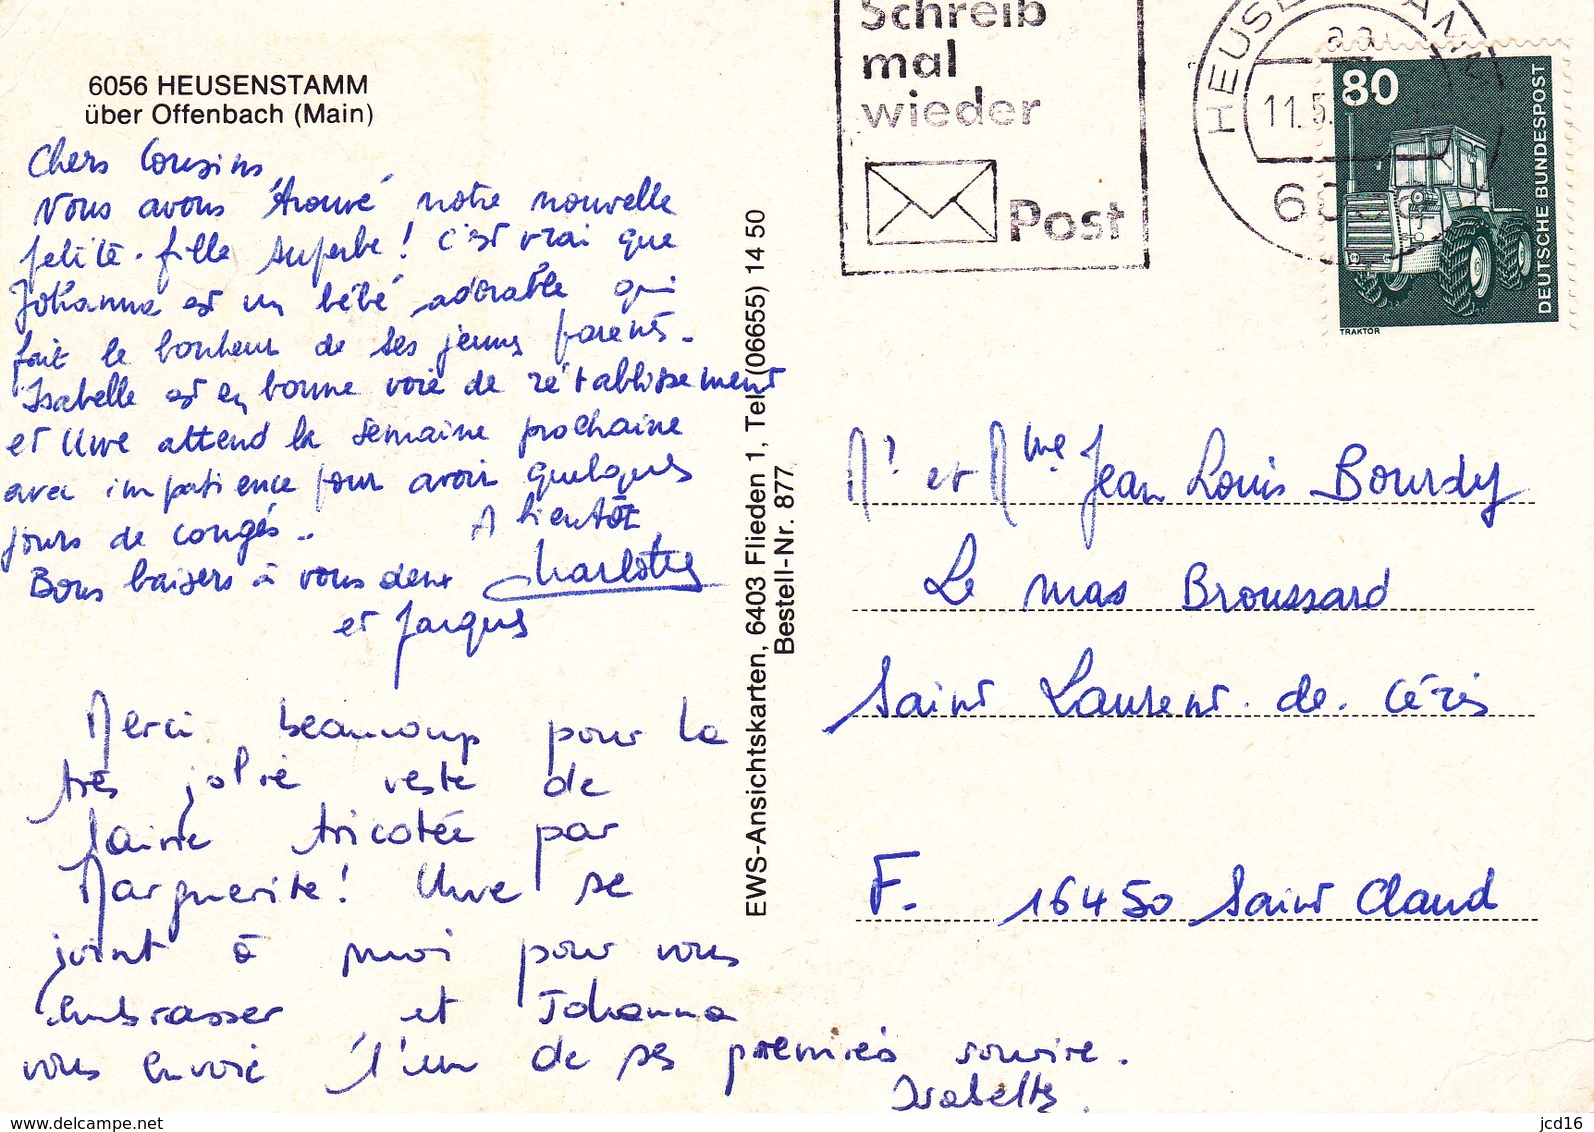 6056 HEUSENSTAMM
über Offenbach (Main)
Chers Cousins,
Nous avons trouvé notre nouvelle
petite-fille superbe ! C'est vrai que
Johanna est un bébé adorable qui
fait le bonheur de ses jeunes parents.
Isabelle est en bonne voie de rétablissement
et Uwe attend la semaine prochaine
avec impatience pour avoir quelques
jours de congés..
A bientôt
Bons baisers à vous deux Charlotte
et Jacques
Merci beaucoup pour la
très jolie veste de
laine tricotée par
Marguerite ! Uwe se
joint à moi pour vous
embrasser et Johanna
vous envoie l'un de ses premiers sourire.
Isabelle.
EWS-Ansichtskarten, 6403 Flieden 1, Tel. (06655) 14 50
Bestell-Nr. 877
Schreib
mal
wieder
Post
HEUSENSTAMM
aa
11.5.
6056
80
DEUTSCHE BUNDESPOST
TRAKTOR
Mr et Mme Jean Louis Bourdy
Le mas Broussard
Saint Laurent-de-Céris
F. 16450 Saint Claud
www.delcampe.net
jcd16